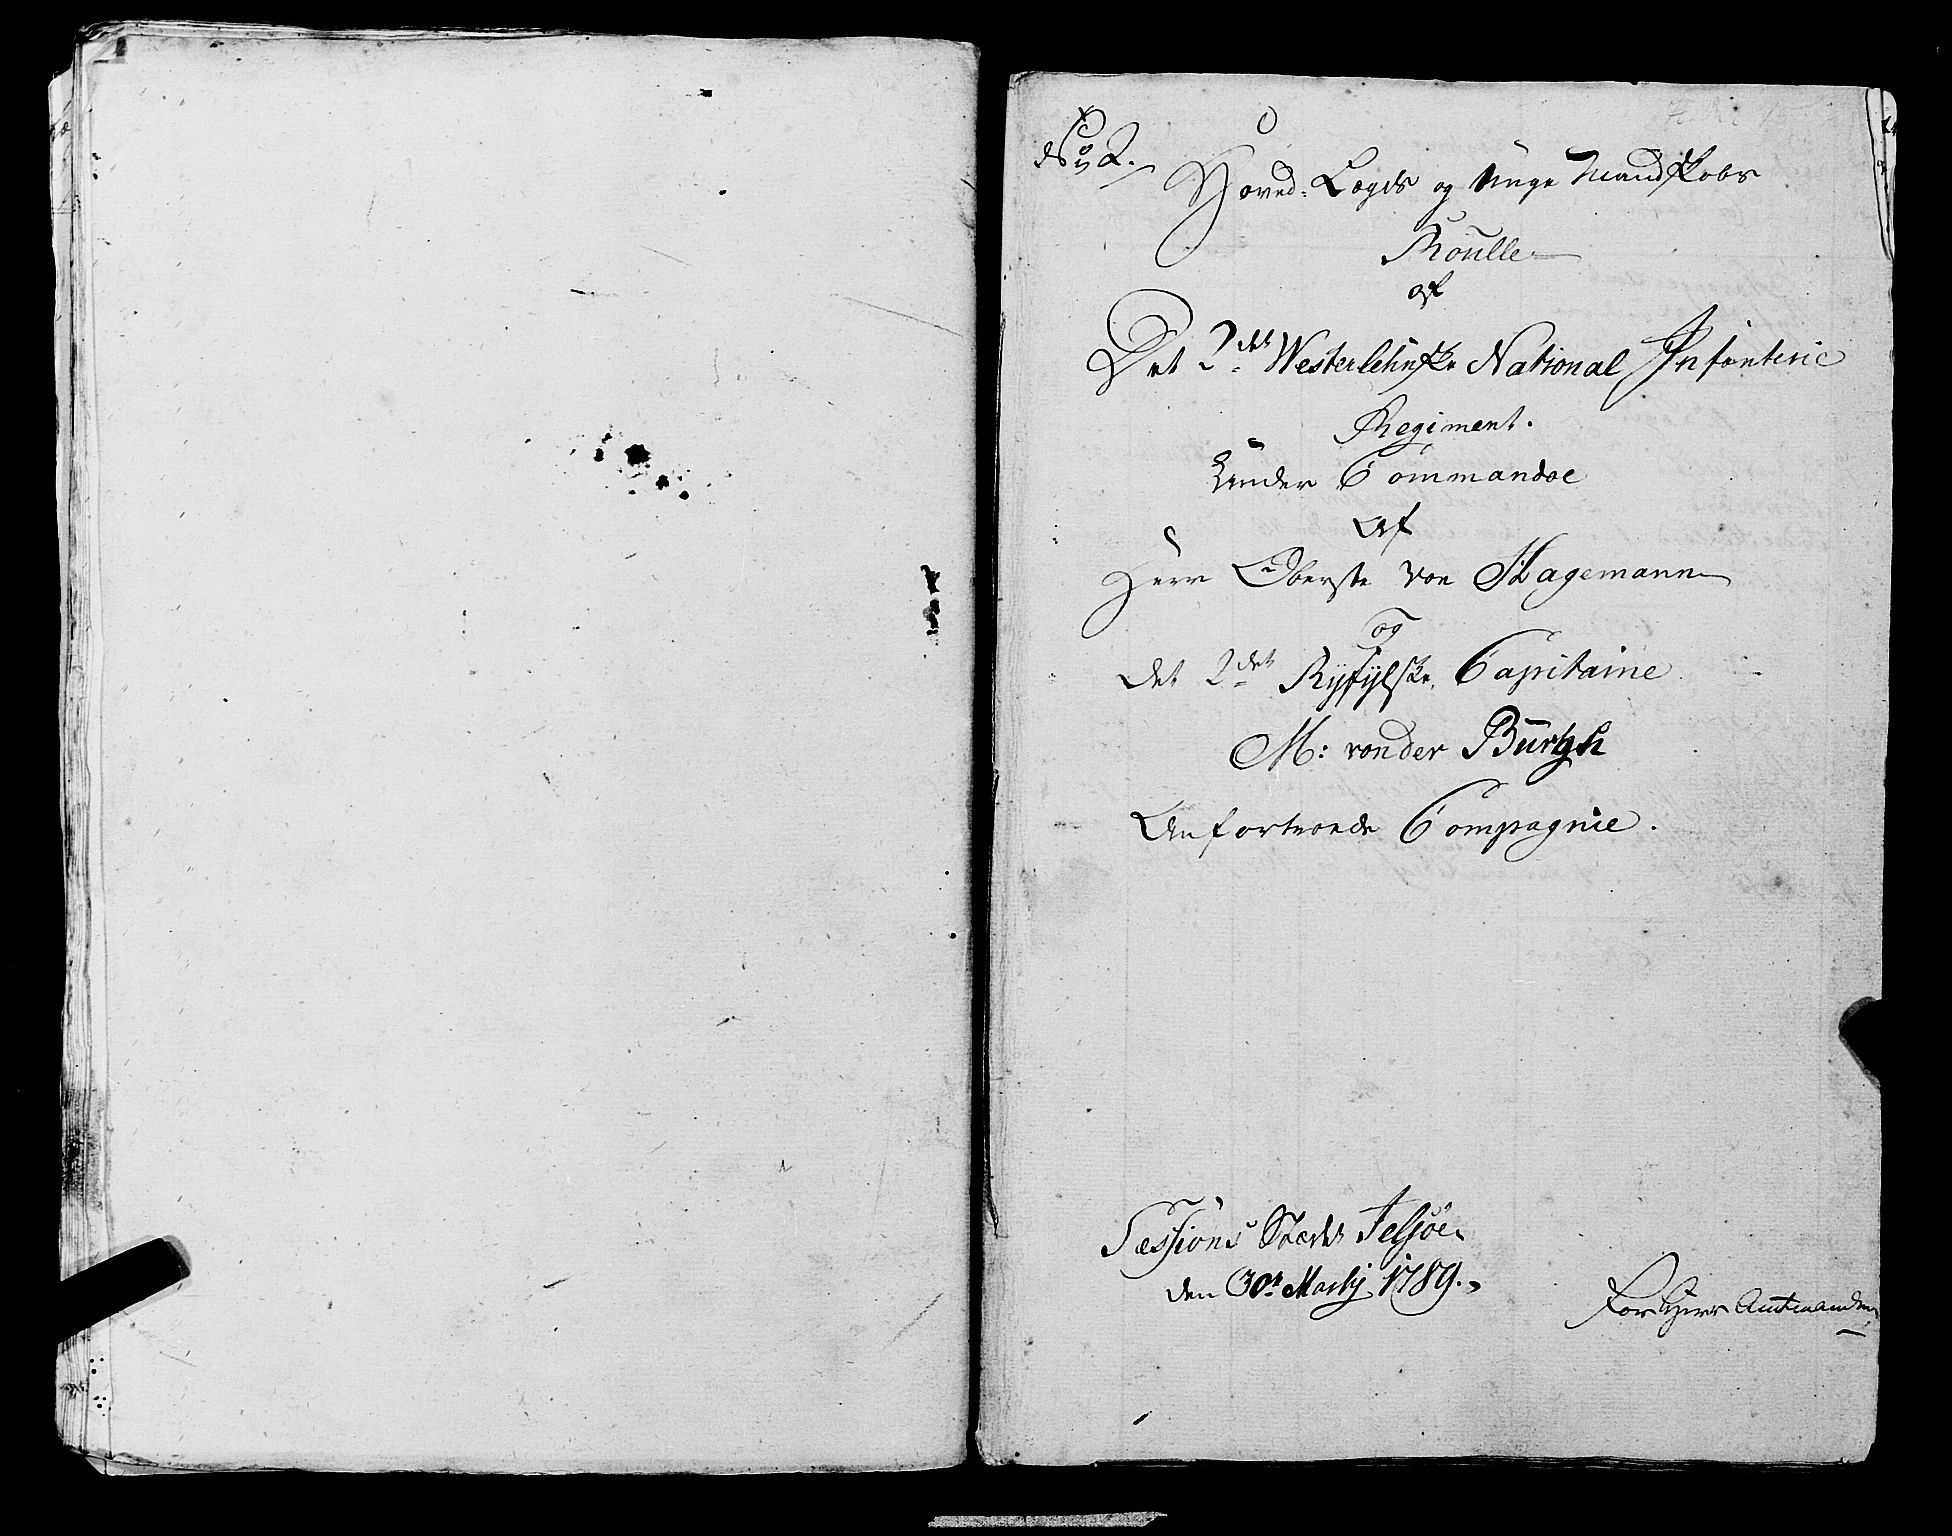 Hoved: Lægds og Unge Mandskabs
Roulle
af
Det 2det Westerlehnske National Infanterie
Regiment.
Under Commandoe
Af
Herr Oberste von Hagemann
og
det 2det Ryfylske Capitaine
M: von der Burgh
Anfortroede Compagnie.
Sessions Stædet Jelsøe
den 30te Martij 1789.
For Herr Amtmanden